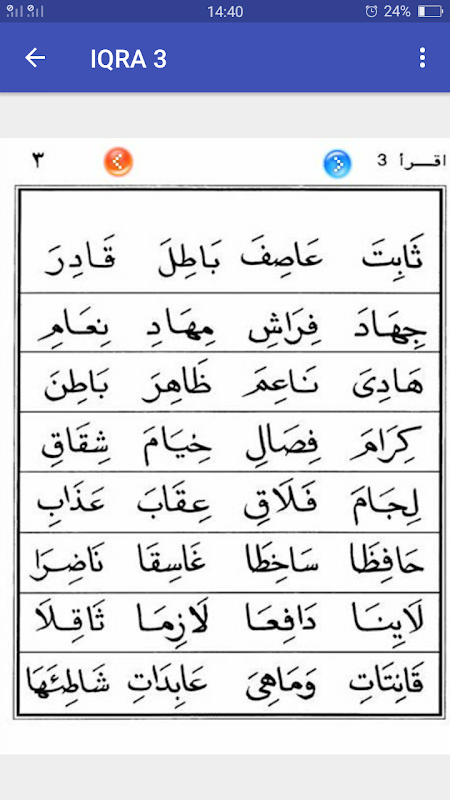 14:40 24%
IQRA 3
٣ اقرأ 3
ثَابِتَ عَاصِفَ بَاطِلَ قَادِرَ
جِهَادَ فِرَاشِ مِهَادِ نِعَامِ
هَادِىَ نَاعِمَ ظَاهِرَ بَاطِنَ
كِرَامَ فِصَالِ خِيَامَ شِقَاقِ
لِجَامَ فَلَاقِ عِقَابَ عَذَابِ
حَافِظَا سَاخِطَا غَاسِقَا نَاضِرَا
لَايِنَا دَافِعَا لَازِمَا ثَاقِلَا
قَانِتَاتِ وَمَاهِىَ عَابِدَاتِ شَاطِئَهَا